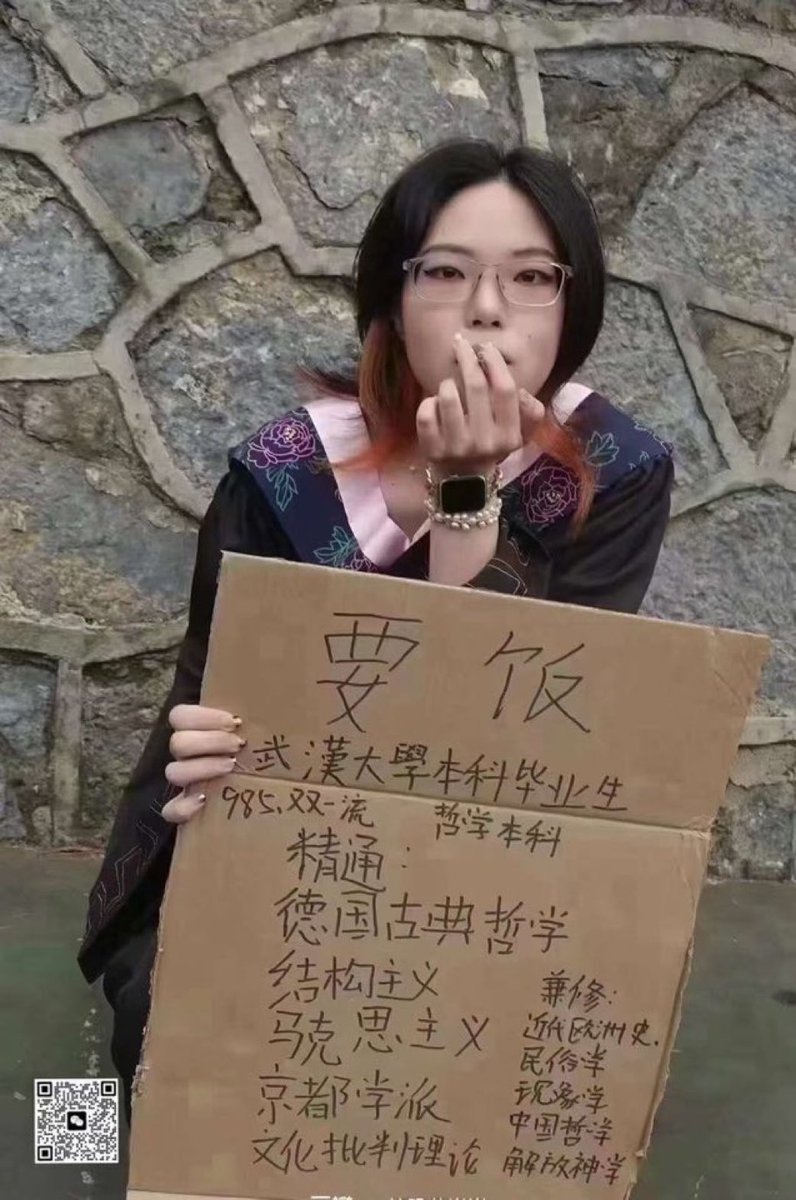 要饭
武漢大學本科毕业生
985.双一流 哲学本科
精通:
德国古典哲学
结构主义
马克思主义
京都学派
文化批判理论
兼修:
近代欧洲史.
民俗学
现象学
中国哲学
解放神学